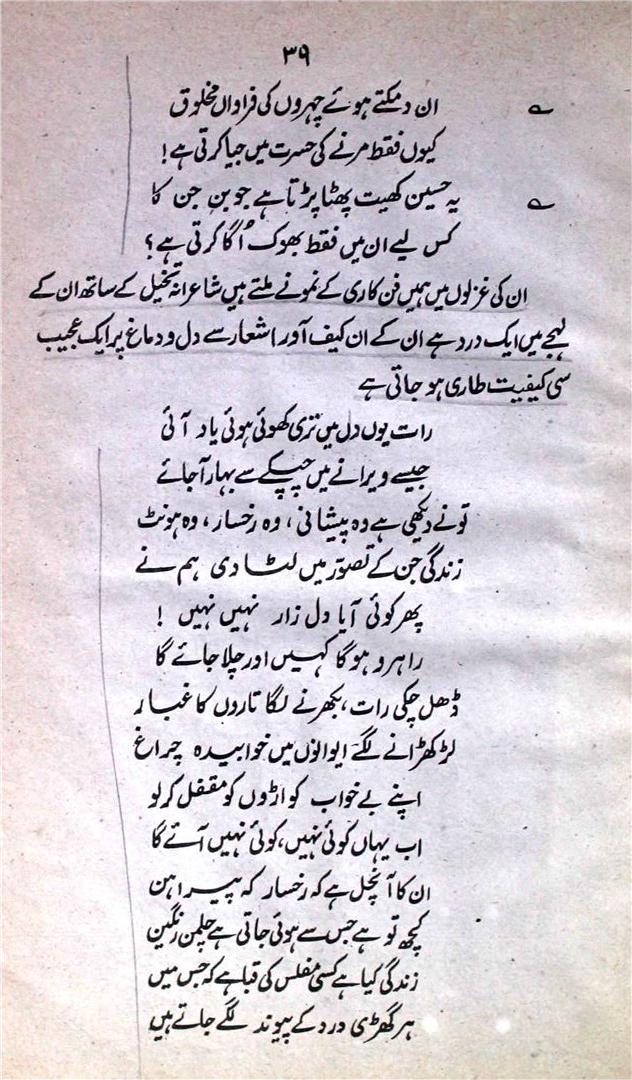 ۳۹
؎ ان دمکتے ہوئے چہروں کی فراواں مخلوق
کیوں فقط مرنے کی حسرت میں جیا کرتی ہے!
؎ یہ حسین کھیت پھٹا پڑتا ہے جوبن جن کا
کس لیے ان میں فقط بھوک اُگا کرتی ہے؟
ان کی غزلوں میں ہمیں فن کاری کے نمونے ملتے ہیں شاعرانہ تخیل کے ساتھ ان کے
لہجے میں ایک درد ہے ان کے ان کیف آور اشعار سے دل و دماغ پر ایک عجیب
سی کیفیت طاری ہو جاتی ہے
رات یوں دل میں تری کھوئی ہوئی یاد آئی
جیسے ویرانے میں چپکے سے بہار آجائے
تو نے دیکھی ہے وہ پیشانی، وہ رخسار، وہ ہونٹ
زندگی جن کے تصوّر میں لٹا دی ہم نے
پھر کوئی آیا دل زار نہیں نہیں !
راہرو ہوگا کہیں اور چلا جائے گا
ڈھل چکی رات، بکھرنے لگا تاروں کا غبار
لڑکھڑانے لگے ایوانوں میں خوابیدہ چراغ
اپنے بے خواب کواڑوں کو مقفل کرلو
اب یہاں کوئی نہیں، کوئی نہیں آئے گا
ان کا آنچل ہے کہ رخسار کہ پیراہن
کچھ تو ہے جس سے ہوئی جاتی ہے چلمن رنگین
زندگی کیا ہے کسی مفلس کی قبا ہے کہ جس میں
ہر گھڑی درد کے پیوند لگے جاتے ہیں